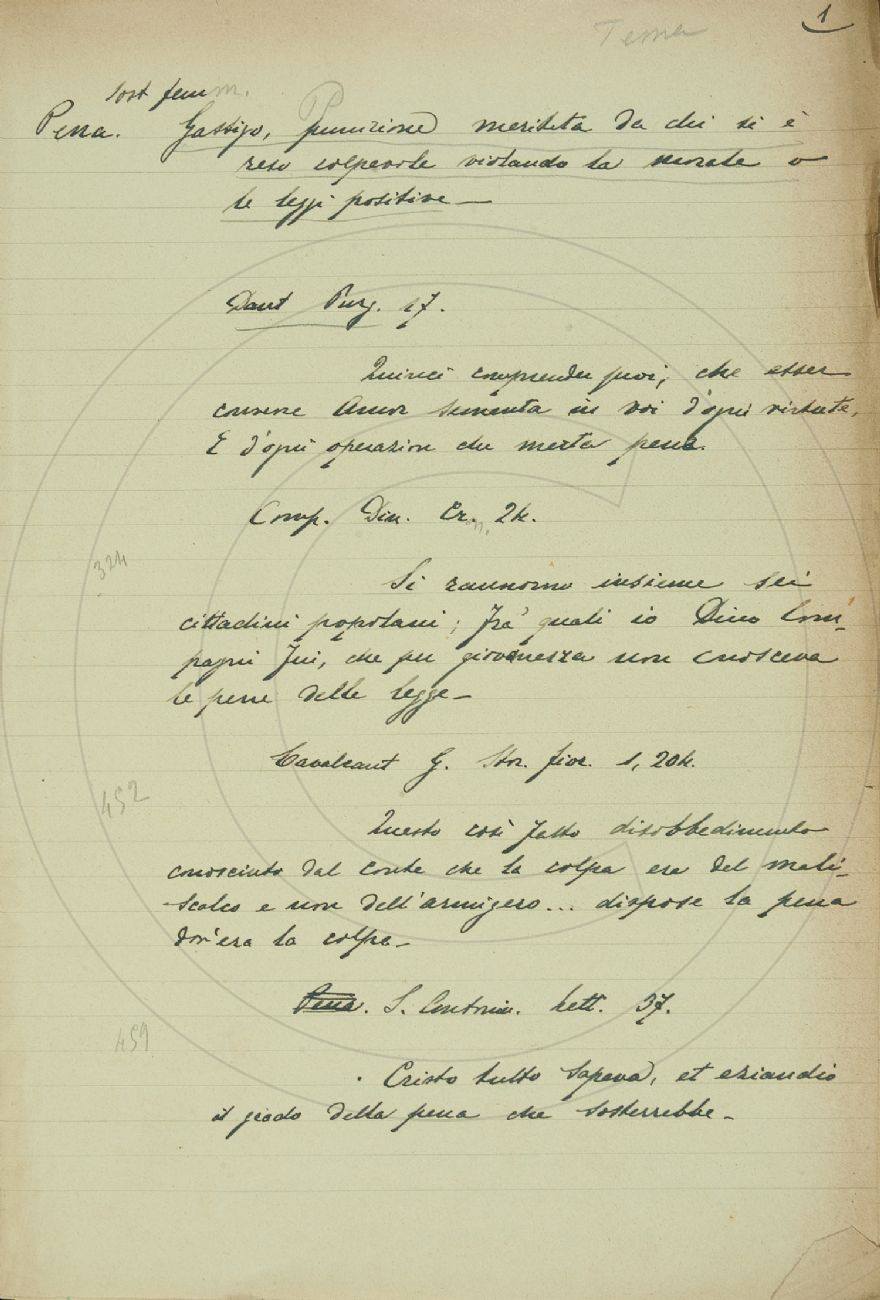 1
Tema
Sost femm.
Pena. Gastigo, punizione meritata da chi si è
reso colpevole violando la morale o
le leggi positive —
Dant Purg. 17.
Quinci comprender puoi, che esser
convene Amor sementa in voi d'ogni virtute,
E d'ogni operazion che merta pena.
Comp. Din. Cr. 24.
324
Si raunomo insieme sei
cittadini popolani; fra' quali io Dino Com-
pagni fui, che per giovanezza non conosceva
le pene delle legge —
Cavalcant G. Stor. fior. 1, 204.
452
Questo così fatto disobbedimento
conosciuto dal conte che la colpa era del mali-
scalco e non dell'armigero... dispose la pena
dov'era la colpa —
Pena. S. Antonin. Lett. 37.
459
Cristo tutto sapeva, et eziandio
il grado della pena che sosterrebbe —